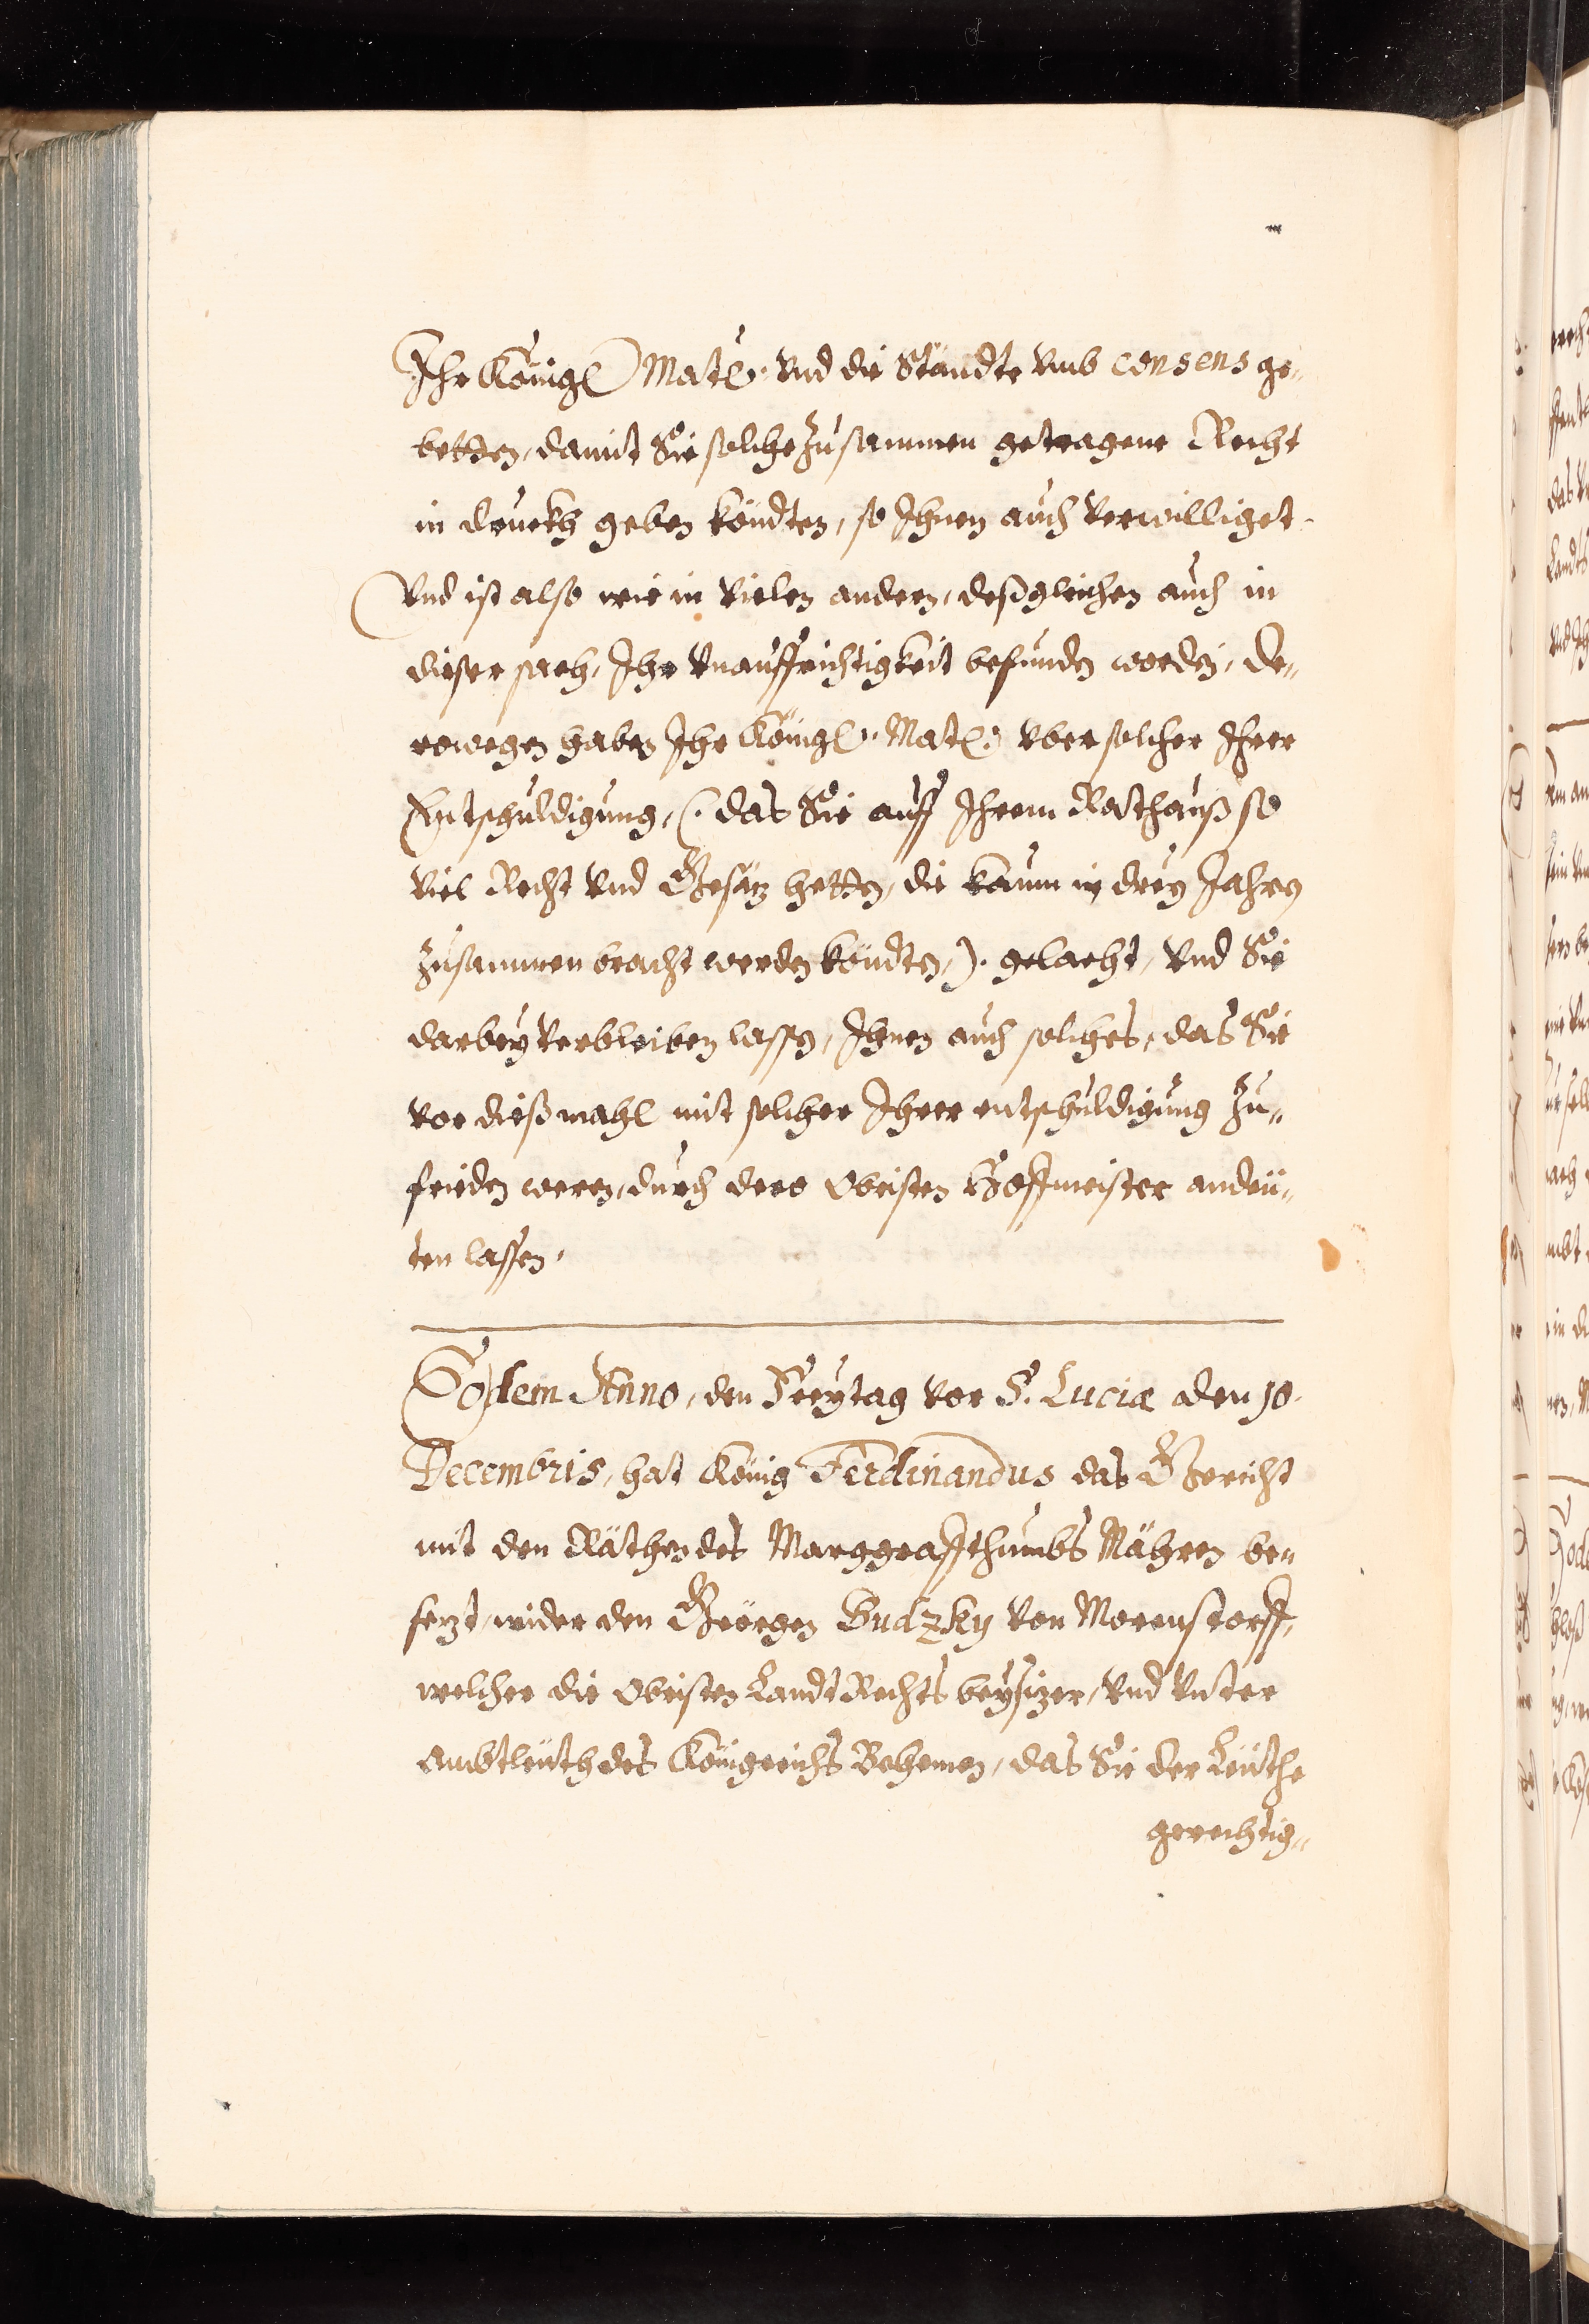 Ihr Königl: Matt: vnd die Ständte vmb consens ge-
betten, damit Sie solche zusammen getragene Recht
in druckh geben köndten, so Ihnen auch verwilliget.
Vnd ist also wie in vielen andern, deßgleichen auch in
dieser sach, Ihr vnauffrichtigkeit befunden worden, De-
rowegen haben Ihr Königl: Matt: vber solcher Ihrer
Entschuldigung, (: das Sie auff Ihrem Rathauß so
viel Recht vnd Gesätz hetten, die kaum in drey Jahren
zusammen bracht werden köndten,): gelacht, vnd Sie
darbey verbleiben lassen, Ihnen auch solches, das Sie
vor dießmahl mit solcher Ihrer entschuldigung zu-
frieden weren, durch dero Obristen Hoffmeister andeü-
ten lassen.
Eodem Anno, den Freytag vor S. Lucia den 10.
Decembris, hat König Ferdinandus das Gericht
mit den Räthen des Marggraffthumbs Mähren be-
sezt, wider den Geörgen Sudzky von Morenstorff,
welcher die Obristen Landt Rechts beysizer, vnd vnter
Ambtleüth des Königreichs Behemen, das Sie der Leüthe
gerechtig-